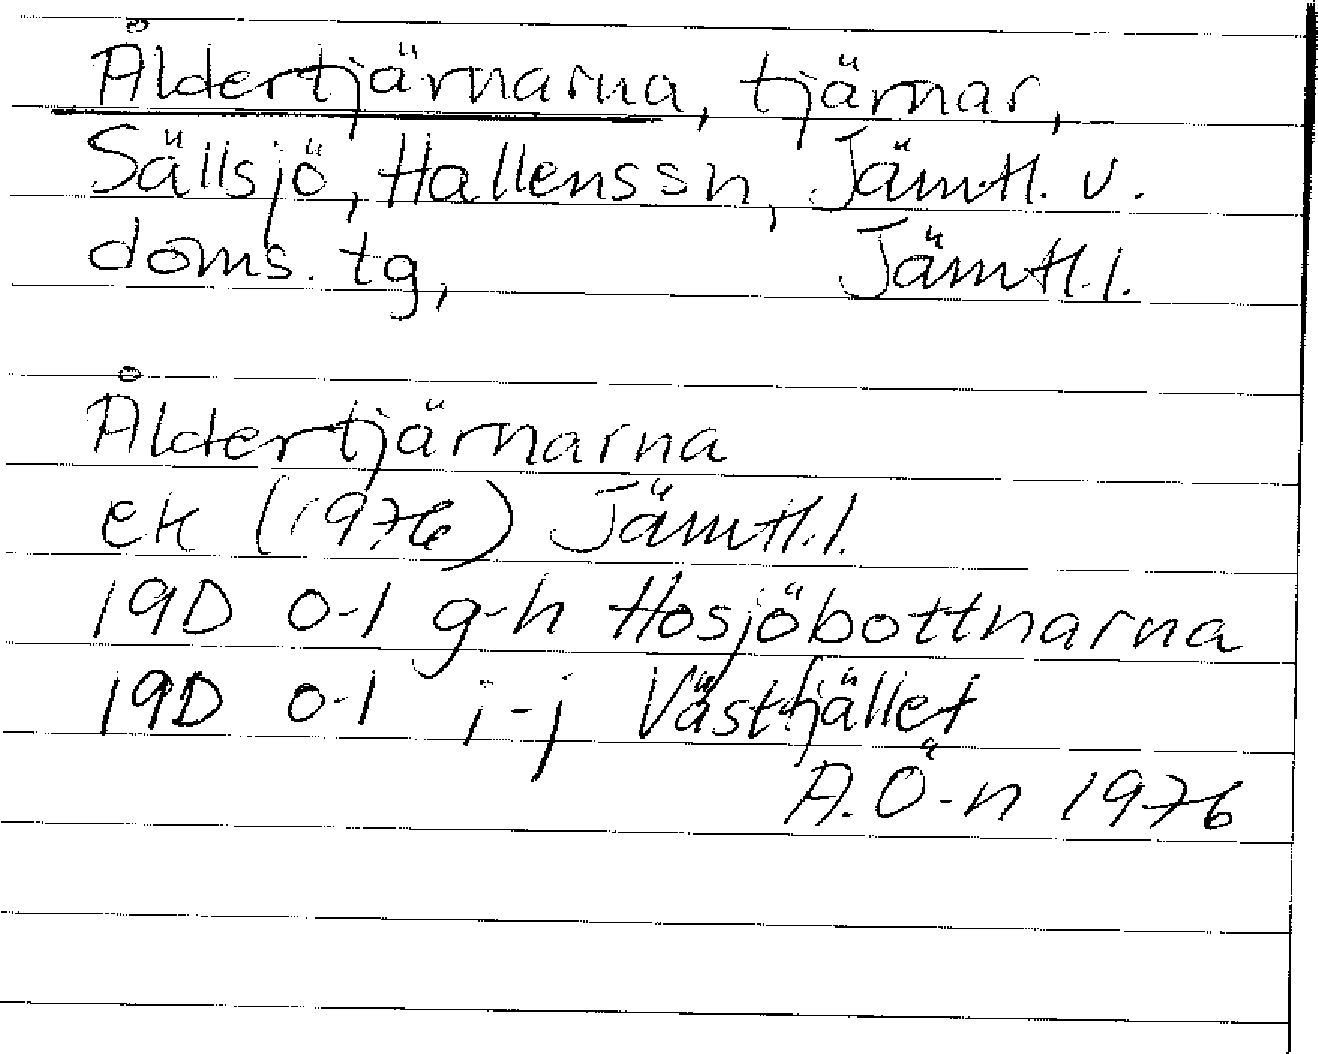 Åldertjärnarna, tjärnar,
Sällsjö, Hallens sn, Jämtl. v.
doms. tg, Jämtl. l.
Åldertjärnarna
ek (1976) Jämtl. l.
19D 0-1 g-h Hosjöbottnarna
19D 0-1 i-j Västfjället
A. Ö-n 1976